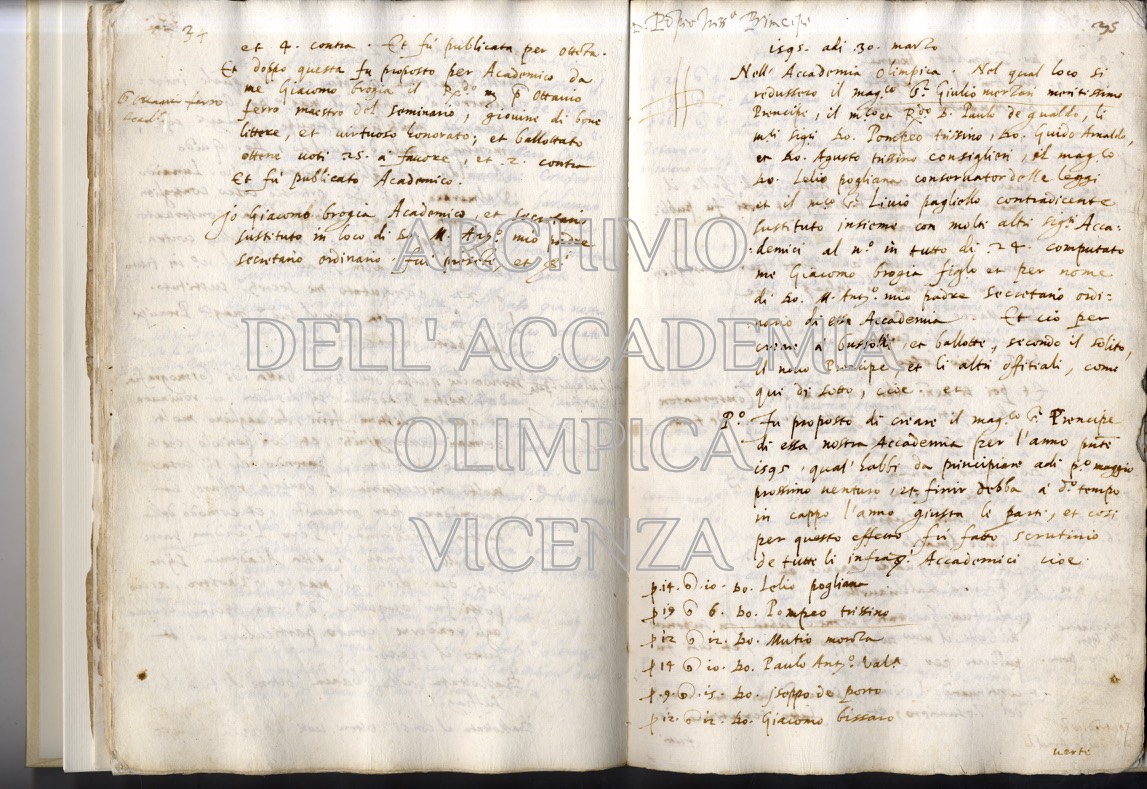 34
et 4. contra. Et fù publicata per ottenuta.
Et doppo questa fu proposto per Academico da
me Giacomo brogia il R.do m. p. Ottavio
ferro maestro del seminario, giovine di bone
littere, et virtuoso honorato; et ballottato
ottene voti 25. à favore, et 2. contra
Et fù publicato Academico.
Jo Giacomo brogia Academico, et secretario
sustituto in loco di Do. M. Ant.o mio padre
secretario ordinario. fui presente, et
ferro
35
Principe
1595. adi .30. marzo
Nell' Accademia olimpica. Nel qual loco si
redussero il mag.co S.r Giulio merzari meritissimo
Prencipe, il m.co et R.do D. Paulo de gualdo, li
Sig.ri Do. Pompeo trissino, Do. Guido Arnaldo,
et Do. Agusto trissino consiglieri, il mag.co
Do. Lelio pogliana conservator delle leggi
et il m.co S.r Livio pagliello contradicente
sustituto insieme con molti altri sig.ri Acca=
=demici al n.o in tutto di 24. computato
me Giacomo brogia figlo et per nome
di Do. M. Ant.o mio padre secretario ordi=
nario di essa Accademia. Et ciò per
creare à bussoli, et ballotte, secondo il solito,
il novo Principe et li altri offitiali, come
qui di sotto, cioe. et
P.o Fu proposto di creare il mag.co S.r Prencipe
di essa nostra Accademia per l'anno pnte
1595, qual habbi da principiare adi p.o maggio
prossimo venturo, et finir debba à d.o tempo
in cappo l'anno giusta le parti, et così
per questo effetto fù fatto scrutinio
de tutti li Accademici cioe.
p. 14. c. 10. Do. Lelio pogliana
p. 19 c. 6. Do. Pompeo trissino
p. 12 c. 12. Do. Mutio monza
p. 14 c. 10. Do. Paulo Ant.o Val.
p. 9. c. 15. Do. Jseppo de porto
p. 12. c. 12. Do. Giacomo bissaro
verte
ARCHIVIO
DELL' ACCADEMIA
OLIMPICA
VICENZA